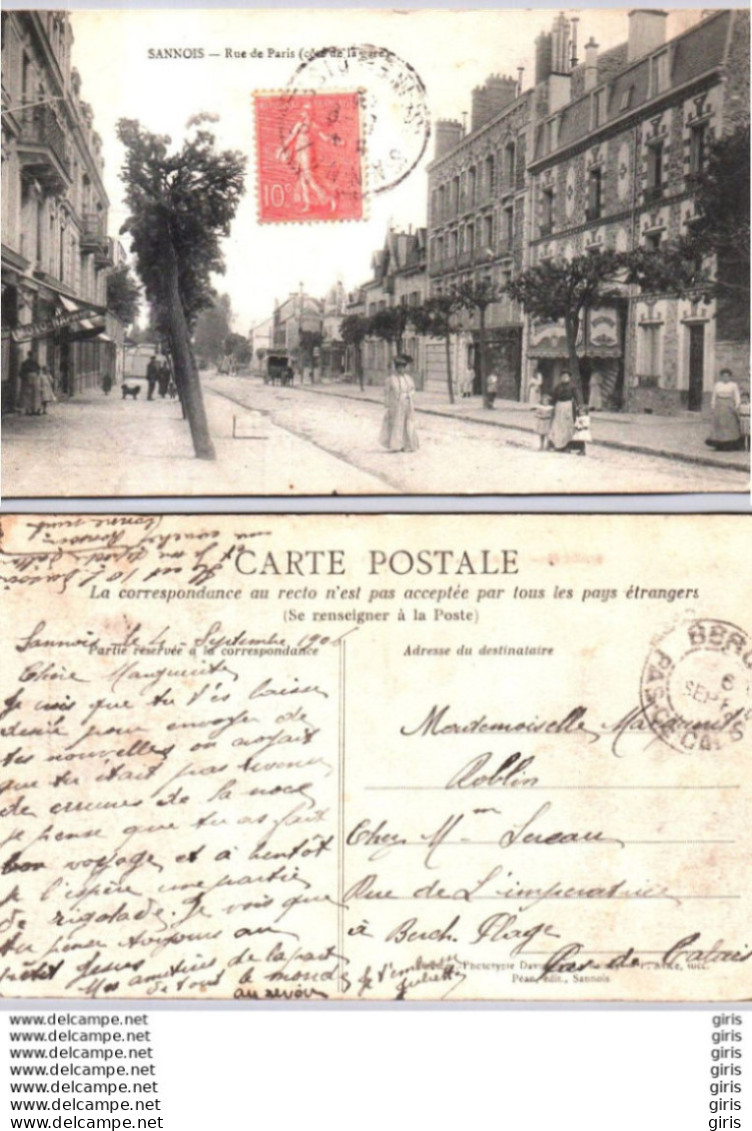 SANNOIS — Rue de Paris (côté de la gare)
10c
CARTE POSTALE
La correspondance au recto n'est pas acceptée par tous les pays étrangers
(Se renseigner à la Poste)
Sannois le 4 Septembre 1906
Partie réservée à la correspondance
Adresse du destinataire
Chère Marguerite
Je vois que tu t'es laissé
pour envoyer de
tes nouvelles on croyait
que tu était pas revenue
de de la noce
je pense que tu as fait
bon voyage et à bientôt
je l'espère une partie
de rigolade. Je vois que
tu pense toujours au
Mes amitiés de la part
de tout le monde
au revoir
je t'embrasse
Juliette
Mademoiselle Marguerite
Roblin
Chez Mme Sereau
Rue de L'imperatrice
à Berck Plage
Pas de Calais
Phototypie
Péan, édit., Sannois
BERCK
6
SEPT
PAS DE CALAIS
www.delcampe.net
www.delcampe.net
www.delcampe.net
www.delcampe.net
www.delcampe.net
www.delcampe.net
www.delcampe.net
giris
giris
giris
giris
giris
giris
giris